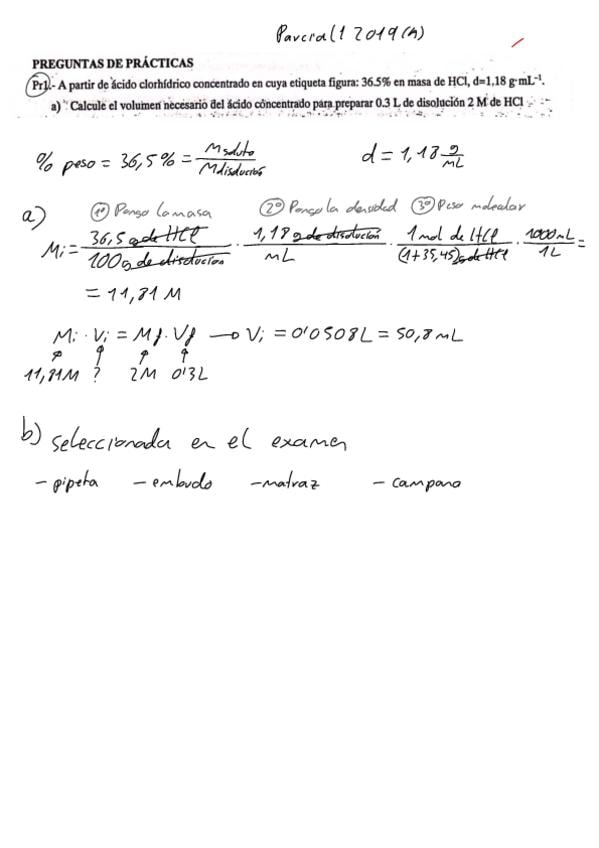 Parcial 1 2019 (A)
PREGUNTAS DE PRÁCTICAS
Pr1.- A partir de ácido clorhídrico concentrado en cuya etiqueta figura: 36.5% en masa de HCl, d=1,18 g·mL⁻¹.
a) Calcule el volumen necesario del ácido concentrado para preparar 0.3 L de disolución 2 M de HCl
% peso = 36,5% = Msoluto / Mdisolución d = 1,18 g/mL
a) 1º Pongo la masa 2º Pongo la densidad 3º Peso molecular
Mi = 36,5 g de HCl / 100 g de disolucion · 1,18 g de disolucion / mL · 1 mol de HCl / (1+35,45) g de HCl · 1000 mL / 1L =
= 11,81 M
Mi · Vi = Mf · Vf → Vi = 0'0508L = 50,8 mL
11,81M ? 2M 0'3L
b) seleccionada en el examen
- pipeta - embudo - matraz - campana